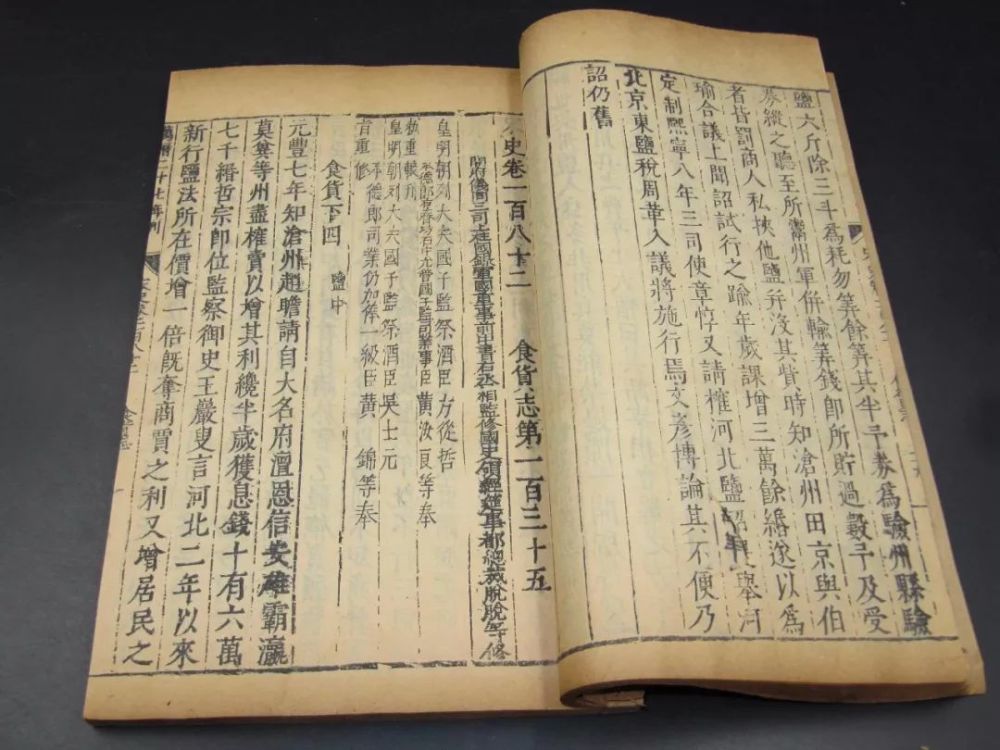 鹽大斤除三斗為耗勿筭餘筭其半予券為驗州縣驗
券縱之聽至所鬻州軍併輸筭錢即所貯過數予及受
者皆罰商人私挾他鹽并沒其貲時知滄州田京與伯
瑜合議上聞詔試行之踰年歲課增三萬餘緡遂以為
定制熙寧八年三司使章惇又請榷河北鹽詔舉河
北京東鹽稅周革入議將施行焉文彥博論其不便乃
詔仍舊
史卷一百八十二 食貨志第一百三十五
開府儀同三司上柱國錄軍國重事前中書右丞相監修國史領經筵事都總裁脫脫等修
皇明朝列大夫國子監祭酒臣方從哲
承德郎右春坊右中允管國子監司業事臣黃汝良等奉
敕重較刊
皇明朝列大夫國子監祭酒臣吳士元
承德郎司業仍加俸一級臣黃錦等奉
旨重修
食貨下四 鹽中
元豐七年知滄州趙瞻請自大名府澶恩信安雄霸瀛
莫冀等州盡榷賣以增其利纔半歲獲息錢十有六萬
七千緡哲宗即位監察御史王巖叟言河北二年以來
新行鹽法所在價增一倍既奪商賈之利又增居民之
萬曆二十七年刊